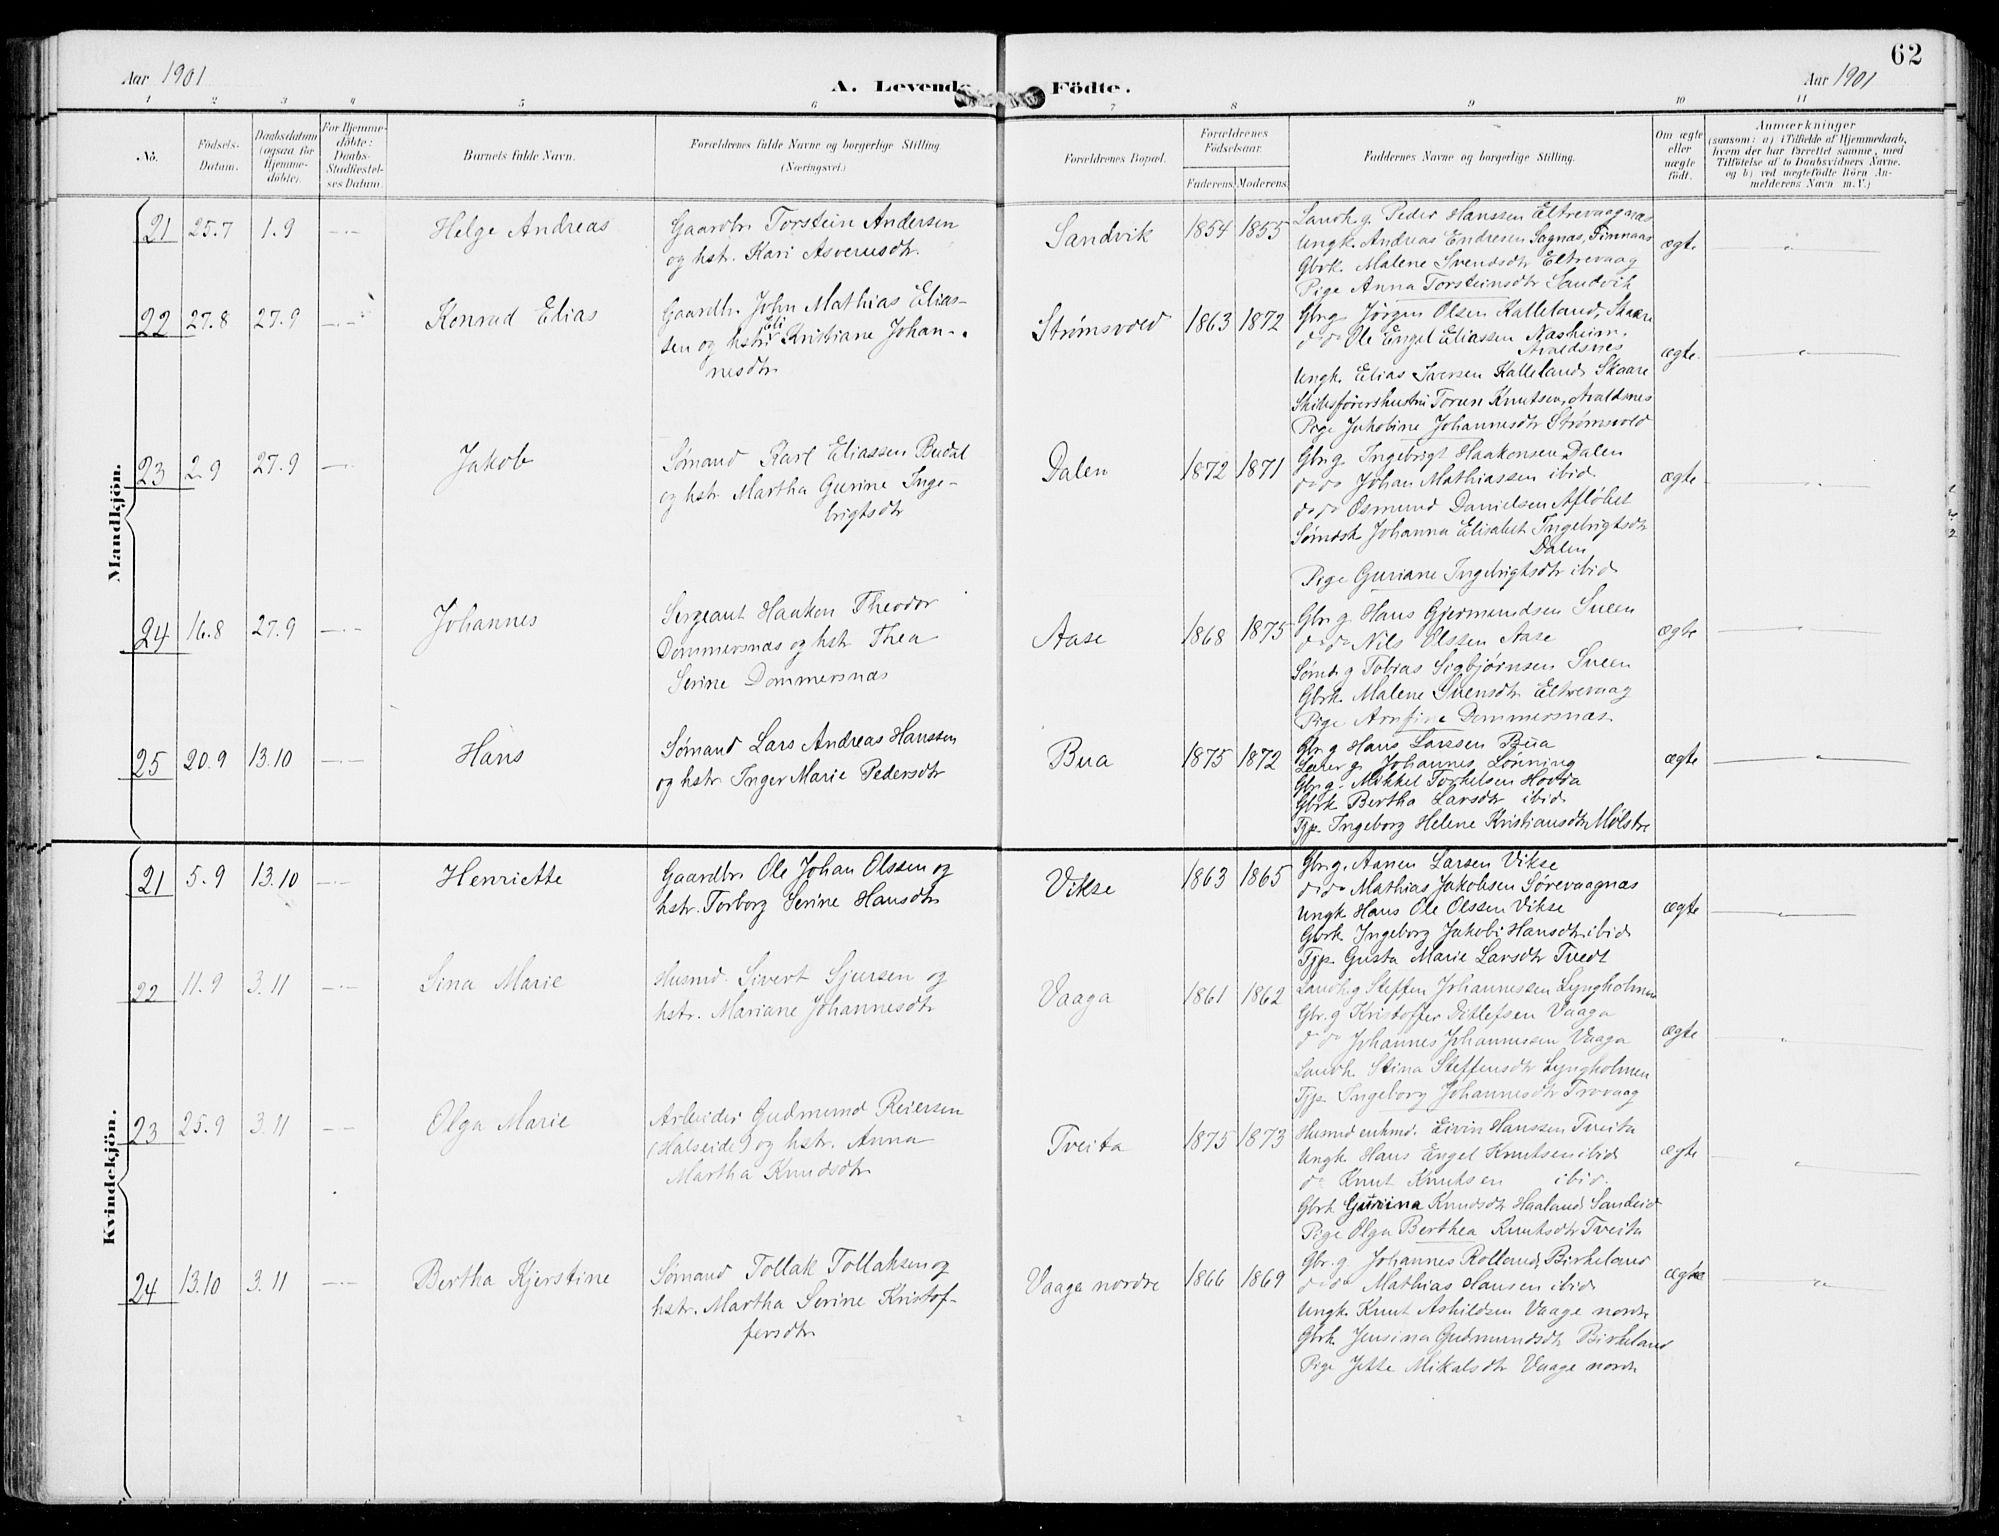 62
Aar 1901
A. Levende Födte.
Aar 1901
1 2 3 4 5 6 7 8 9 10 11
No.
Födsels-
Datum.
Daabsdatum
(ogsaa for
Hjemme-
döbte).
For Hjemme-
döbte:
Daabs-
Stadfæstel-
ses Datum.
Barnets fulde Navn.
Forældrenes fulde Navne og borgerlige Stilling
(Næringsvei.)
Forældrenes Bopæl.
Forældrenes
Födselsaar.
Faderens.
Moderens.
Faddernes Navne og borgerlige Stilling.
Om ægte
eller
uægte
födt.
Anmærkninger
(saasom: a) i Tilfælde af Hjemmedaab,
hvem der har forrettet samme, med
Tilföielse af to Daabsvidners Navne.
og b) ved uægtefödte Börn An-
melderens Navn m.V.)
Mandkjön.
21 25.7 1.9 Helge Andreas
Gaardbr. Torstein Andersen
og hstr. Kari Asveruesdtr.
Sandvik 1854 1855
Landh. g. Peder Hanssen Eltrevaagnæs
Ungk. Andreas Endresen Sagnæs, Finnaas
Gbrk. Malene Svendsdtr Eltrevaag
Pige Anna Torsteinsdtr Sandvik
ægte
22 27.8 27.9 Konrad Elias
Gaardbr. John Mathias Elias-
sen og hstr. Eli Kristiane Johan-
nesdtr
Strømsvold 1863 1872
Gbr.g. Jørgen Olsen Kalleland, Skaare
do do Ole Engel Eliassen Nasheim.
Avaldsnes
Ungk. Elias Iversen Kalleland Skaare
Skibsførershustru Torun Knutsen, Avaldsnes
Pige Jakobine Johannesdtr Strømsvold
ægte.
23 2.9 27.9 Jakob
Sømand Karl Eliassen Budal
og hstr Martha Gurine Inge-
brigtsdtr
Dalen 1872 1871
Gbr.g. Ingebrigt Haakonsen Dalen
do do Johan Mathiassen ibid
do do Osmund Danielsen Afløbet
Sømdsk Johanna Elisabet Ingebrigtsdtr
Dalen
Pige Guriane Ingebrigtsdtr ibid
ægte
24 16.8 27.9 Johannes
Sergeant Haakon Theodor
Dommersnæs og hstr Thea
Serine Dommersnæs
Aase 1868 1875
Gbr.g Hans Gjermundsen Sveen
do do Nils Olssen Aase
Sømd.g Tobias Sigbjørnsen Sveen
Gbrk. Malene Svensdtr Eltrevaag
Pige Arnfine Dommersnæs
ægte
25 20.9 13.10 Hans
Sømand Lars Andreas Hanssen
og hstr Inger Marie Pedersdtr
Bua 1875 1872
Gbr.g Hans Larssen Bua
Lærer g. Johannes Lønning
Gbr.g. Mikkel Torkelsen Hovda
Gbrk Bertha Larsdtr ibid
Tjp. Ingeborg Helene Kristiansdtr Mølstre
ægte
Kvindekjön.
21 5.9 13.10 Henriette
Gaardbr. Ole Johan Olssen og
hstr. Torborg Serine Hansdtr
Vikse 1863 1865
Gbr.g. Aanen Larsen Vikse
do do Mathias Jakobsen Sørevaagnæs
Ungk Hans Ole Olssen Vikse
Gbrk Ingeborg Jakobi Hansdtr ibid
Tjp. Gusta Marie Larsdtr Tvedt
ægte
22 11.9 3.11 Sina Marie
Husmd. Sivert Sjursen og
hstr. Mariane Johannesdtr
Vaaga 1861 1862
Landh.g Steffen Johannessen Lyngholmen
Gbr.g Kristoffer Ditlefsen Vaaga
do do Johannes Johannessen Vaaga
Landh. Stina Steffensdtr Lyngholmen
Tjp. Ingeborg Johannesdtr Trovaag
ægte
23 25.9 3.11 Olga Marie
Arbeider Gudmund Reiersen
(Halseide) og hstr. Anna
Martha Knudsdtr
Tveita 1875 1873
Husmd enkmd. Eivin Hanssen Tveita
Ungk Hans Engel Knutsen ibid
do Knut Knutsen ibid.
Gbrk Gurina Knudsdtr Haaland Sandeid
Pige Olga Berthea Knutsdtr Tveita
ægte
24 13.10 3.11 Bertha Kjerstine
Sømand Tollak Tollaksen og
hstr. Martha Serine Kristof-
fersdtr
Vaage nordre 1866 1869
Gbr.g Johannes Rolland, Birkeland
do do Mathias Hansen ibid
Ungk. Knut Ashildsen Vaage nordr
Gbrk. Jensina Gudmundsdtr Birkeland
Pige Jette Mikalsdtr Vaage nordr
ægte